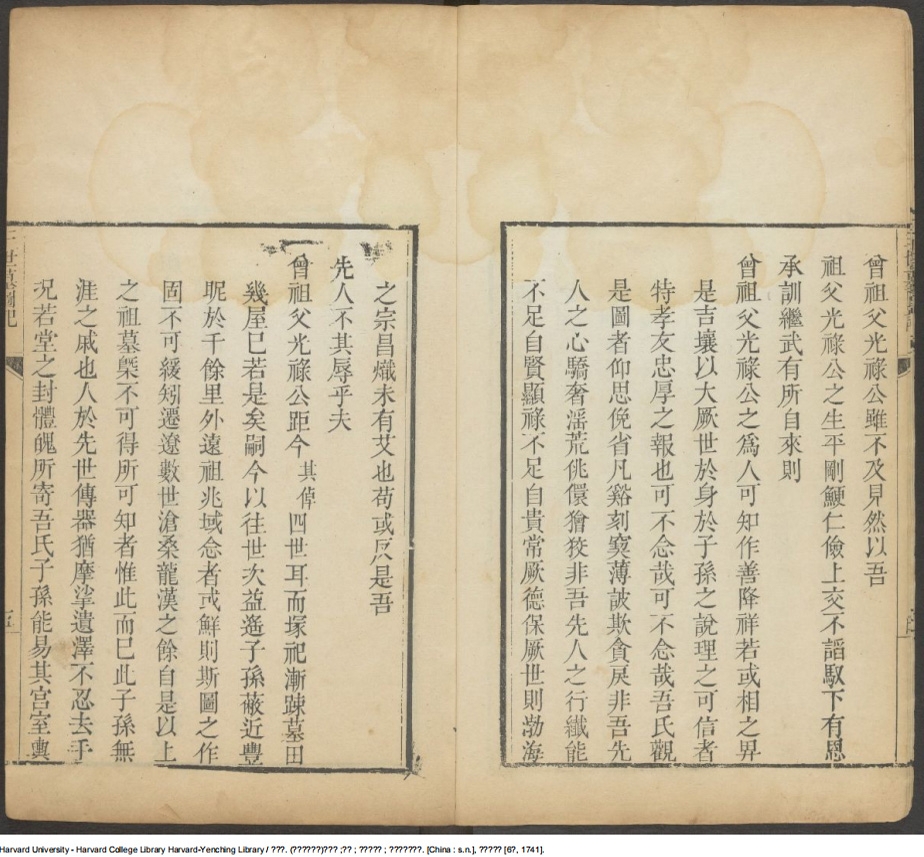 曾祖父光祿公雖不及見然以吾
祖父光祿公之生平剛鯁仁儉上交不謟馭下有恩
承訓繼武有所自來則
曾祖父光祿公之爲人可知作善降祥若或相之昇
是吉壤以大厥世於身於子孫之說理之可信者
特孝友忠厚之報也可不念哉可不念哉吾氏觀
是圖者仰思俛省凡谿刻䆮薄詖欺貪戾非吾先
人之心驕奢滛荒佻儇獪狡非吾先人之行纎能
不足自賢顯祿不足自貴常厥德保厥世則渤海
之宗昌熾未有艾也苟或反是吾
先人不其辱乎夫
曾祖父光祿公距今其倬四世耳而塚祀漸踈墓田
幾屋巳若是矣嗣今以往世次益遙子孫蔽近豐
昵於千餘里外遠祖兆域念者或鮮則斯圖之作
固不可緩矧遷遼數世滄桑龍漢之餘自是以上
之祖墓槩不可得所可知者惟此而巳此子孫無
涯之戚也人於先世傳器猶摩挲遺澤不忍去手
况若堂之封體魄所寄吾氏子孫能易其宮室輿
Harvard University - Harvard College Library Harvard-Yenching Library / ???. (??????)??? ;?? ; ????? ; ???????. [China : s.n.], ????? [6?, 1741].